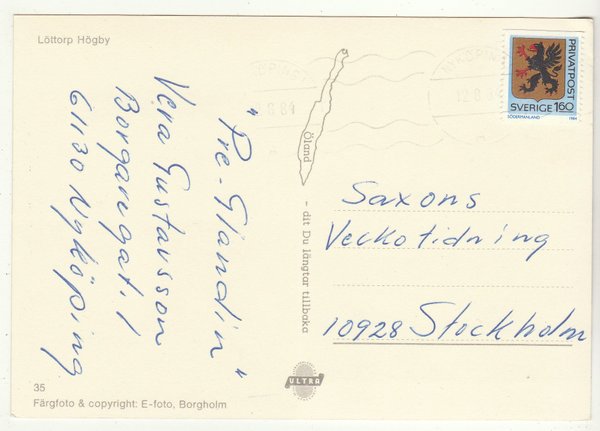 Löttorp Högby
"Pre-Glandin"
Vera Gustavsson
Borgargat. 1
61130 Nyköping
Öland - dit Du längtar tillbaka
PRIVATPOST
SVERIGE 160
SÖDERMANLAND 1984
Saxons
Veckotidning
10928 Stockholm
ULTRA
35
Färgfoto & copyright: E-foto, Borgholm